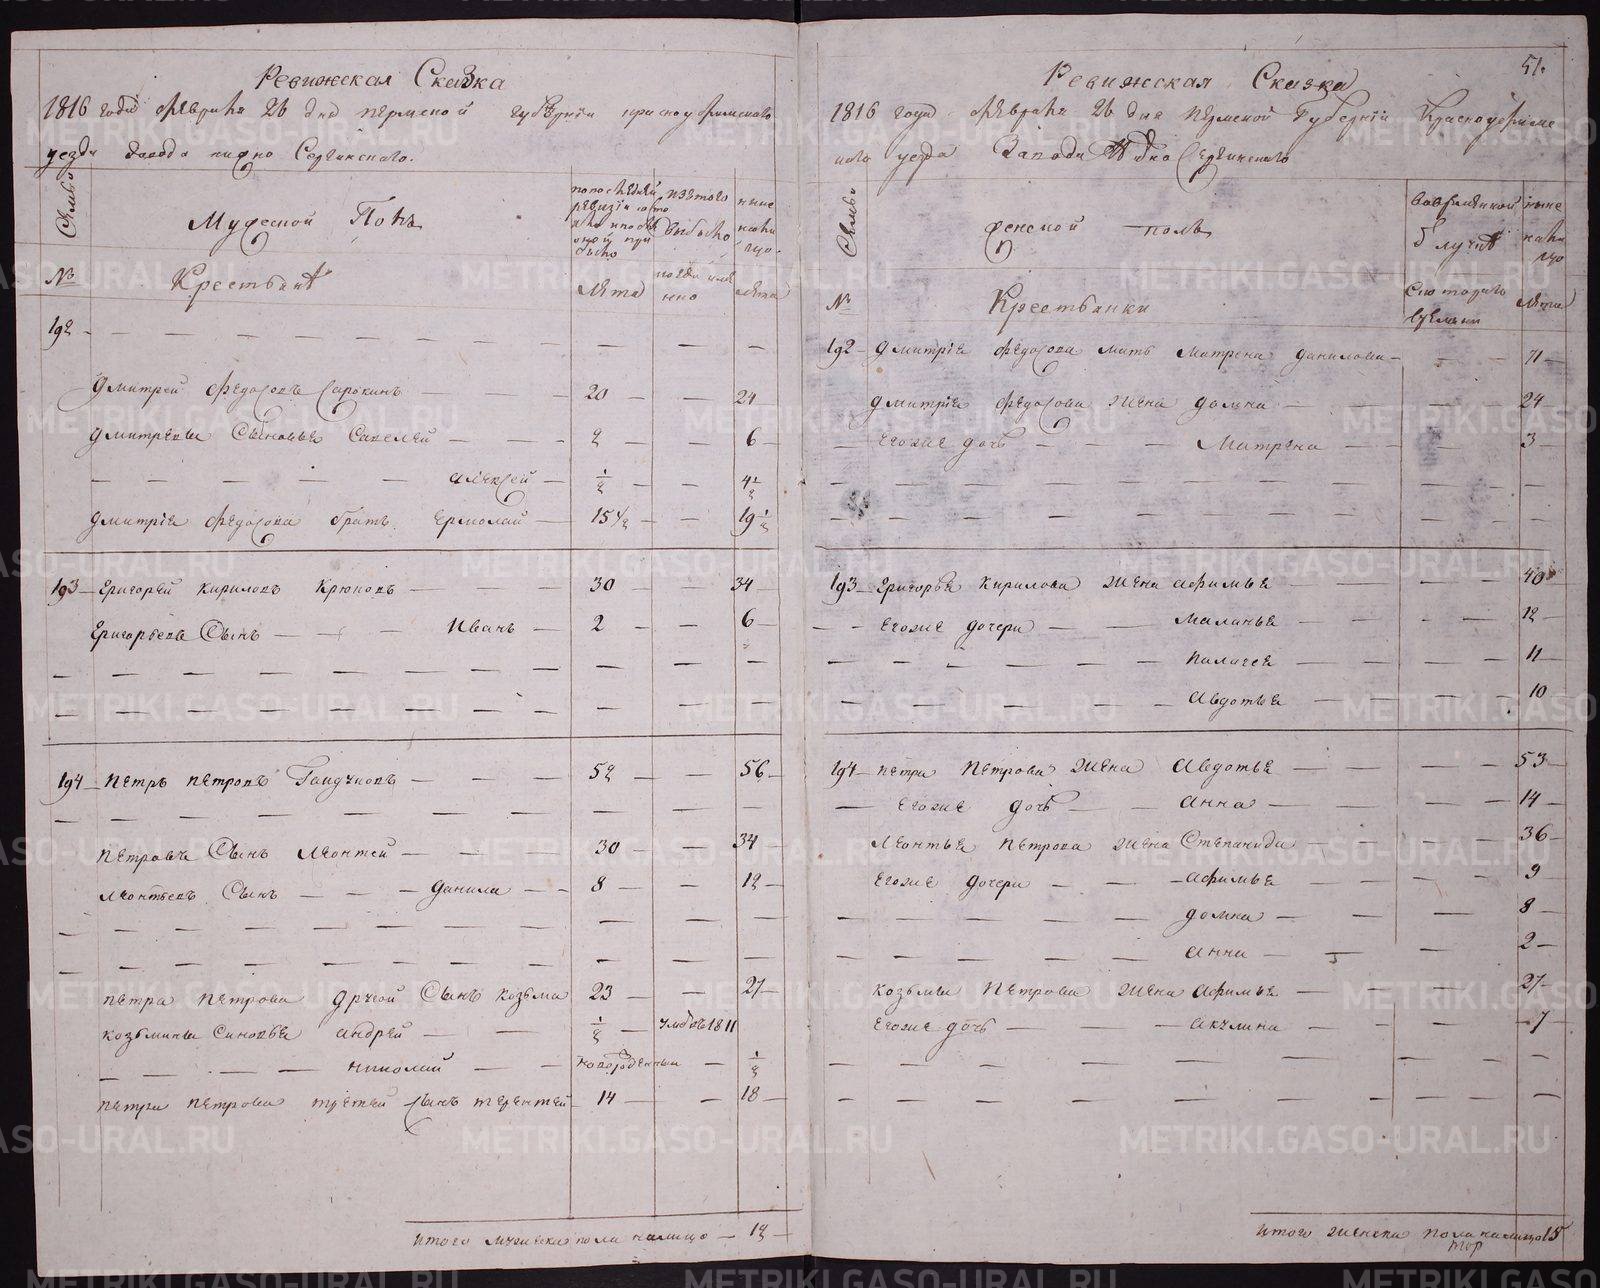 51.
Ревижская Сказка
1816 года февраля 26 дня пермской губернии красноуфимскаго
уезда завода нижно Сергинскаго.
Семьи
Мужеской Полъ
попоследней ревизiи состояло ипосле оной прибыло
изтого выбыло
ныне налицо
№
Крестьянъ
лета
когда имянно
лета
192 — — — — —
дмитрей федосовъ Сарокинъ — 20 — — 24
дмитревы Сыновье Савелей — 2 — — 6
— — — алексей — 1/2 — — 4 1/2
дмитрiя федосова братъ Ермолай — 15 1/2 — — 19 1/2
193 — Григорей кириловъ Крюковъ — 30 — — 34
Григорьевъ Сынъ — Иванъ — 2 — — 6
194 — петръ петровъ — 52 — — 56
петрова Сынъ леонтей — 30 — — 34
леонтьевъ Сынъ — данила — 8 — — 12
петра петрова другой Сынъ козьма 23 — — 27
козьмины Синовье андрей — 1/2 — умре 1811
— николай — новорожденный — 1/2
петра петрова третей Сынъ терентей 14 — — 18
итого мужеска пола налицо — 12
Ревижская Сказка
1816 года февраля 26 дня пермской Губернiи Красноуфимс
каго уезда Завода Нижно Сергинскаго
Семьи
женской полъ
вовременной отлучке
ныне налицо
№
Крестьянки
Скотораго времени
лета
192 — дмитрiя федосова мать матрена данилова — — 71
дмитрiя федосова жена домна — — 24
— Егоже дочь — Матрена — — 3
193 — Григорья кирилова жена афимья — 40
— Егоже дочери — маланья — 12
— палагея — 11
— авдотья — 10
194 — петра Петрова жена авдотья — 53
— Егоже дочь — анна — 14
леонтья петрова жена Степанида — 36
Егоже дочери — афимья — 9
домна — 8
анна — 2
козьмы Петрова жена афимья — 27
Егоже дочь — акулина — 7
итого женска пола налицо 15
METRIKI.GASO-URAL.RU